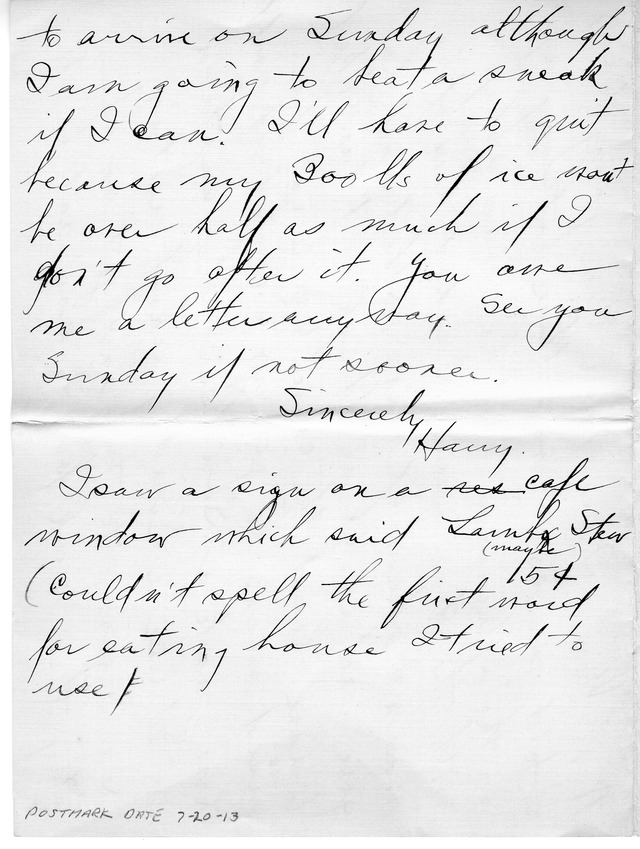 to arrive on Sunday although
I am going to beat a sneak
if I can. I'll have to quit
because my 300 lbs of ice won't
be over half as much if I
don't go after it. You owe
me a letter anyway. See you
Sunday if not sooner.
Sincerely
Harry.
I saw a sign on a res cafe
window which said Lamb Stew
(maybe)
15¢
(Couldn't spell the first word
for eating house I tried to
use)
POSTMARK DATE 7-20-13